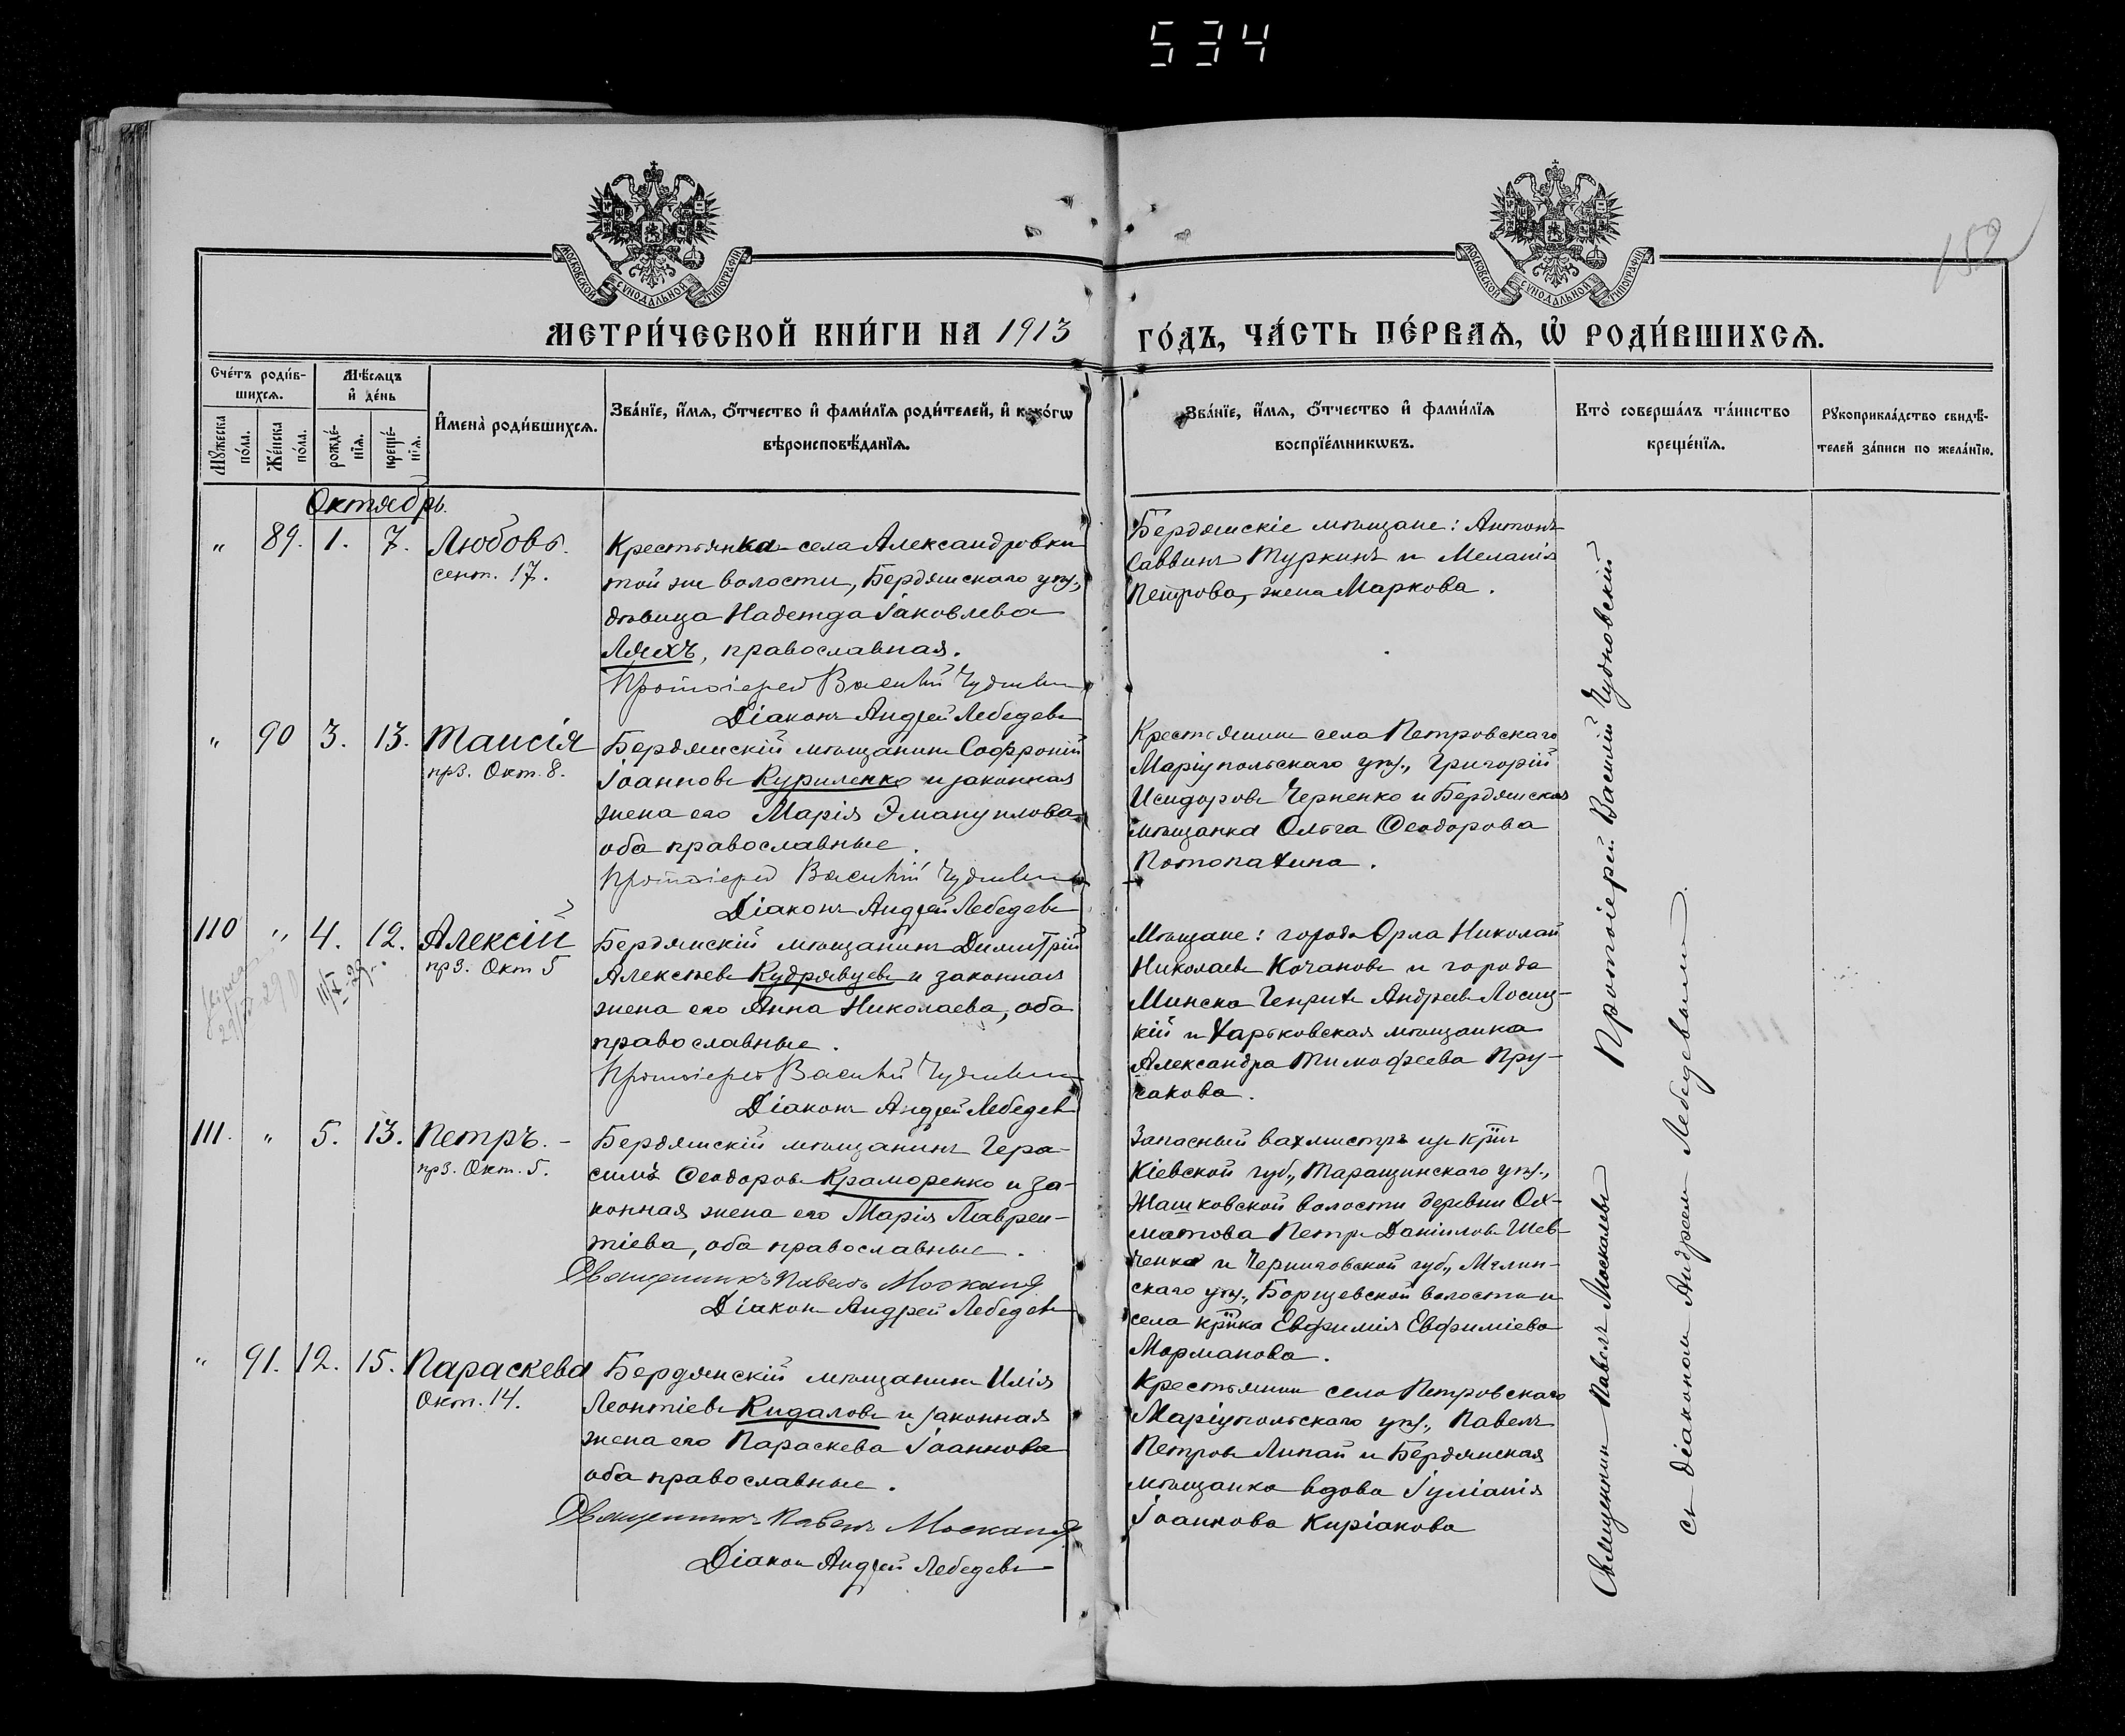 534
152
МОСКОВСКОЙ СѴНОДАЛЬНОЙ ТИПОГРАФІИ
МОСКОВСКОЙ СѴНОДАЛЬНОЙ ТИПОГРАФІИ
МЕТРИ́ЧЕСКОЙ КНИ́ГИ НА 1913 ГО́ДЪ, ЧА́СТЬ ПЕ́РВАѦ, Ѽ РОДИ́ВШИХСѦ.
Сче́тъ роди́в-
шихсѧ.
Мѣ́сѧцъ
и҆ де́нь
Мꙋ́жеска
по́ла.
Же́нска
по́ла.
рожде́-
нїѧ.
креще́-
нїѧ.
И҆мена̀ роди́вшихсѧ.
Зва́нїе, и҆́мѧ, ѻ҆́тчество и҆ фами́лїѧ роди́телей, и҆ како́гѡ
вѣроисповѣ́данїѧ.
Зва́нїе, и҆́мѧ, ѻ҆́тчество и҆ фами́лїѧ
воспрїе́мникѡвъ.
Кто̀ соверша́лъ та́инство
креще́нїѧ.
Рꙋкоприкла́дство свидѣ́-
телей за́писи по жела́нїю.
Октябрь.
" 89. 1. 7. Любовь.
сент. 17.
Крестьянка села Александровки
той же волости, Бердянскаго уѣз.,
дѣвица Надежда Іаковлева
Ляхъ, православная.
Протоіерей Василій Чудновскій
Діаконъ Андрей Лебедевъ
Бердянскіе мѣщане: Антонъ
Саввинъ Туркинъ и Меланія
Петрова, жена Маркова.
" 90 3. 13. Таисія
прз. Окт. 8.
Бердянскій мѣщанинъ Софроній
Іоанновъ Куриленко и законная
жена его Марія Эмануилова
оба православные.
Протоіерей Василій Чудновскій
Діаконъ Андрей Лебедевъ
Крестьянинъ села Петровскаго
Маріупольскаго уѣз., Григорій
Исидоровъ Черненко и Бердянская
мѣщанка Ольга Ѳеодорова
Потопахина.
110 " 4. 12. Алексій
прз. Окт 5
Бердянскій мѣщанинъ Димитрій
Алексѣевъ Кудрявцевъ и законная
жена его Анна Николаева, оба
православные.
Протоіерей Василій Чудновскій
Діаконъ Андрей Лебедевъ
Мѣщане: города Орла Николай
Николаевъ Кочановъ и города
Минска Генрихъ Андреевъ Лосиц-
кій и Харьковская мѣщанка
Александра Тимофеева Пру-
сакова.
111. " 5. 13. Петръ. -
прз. Окт. 5.
Бердянскій мѣщанинъ Гера-
симъ Ѳеодоровъ Краморенко и за-
конная жена его Марія Лаврен-
тіева, оба православные.
Священникъ Павелъ Москалевъ
Діаконъ Андрей Лебедевъ
Запасный вахмистръ изъ крнъ
Кіевской губ., Таращинскаго уѣз.,
Жашковской волости деревни Ох-
матова Петръ Даніиловъ Шев-
ченко и Черниговской губ., Мглин-
скаго уѣз., Борщевской волости и
села крнка Евфимія Евфиміева
Морманова.
" 91. 12. 15. Параскева
Окт. 14.
Бердянскій мѣщанинъ Илія
Леонтіевъ Кидаловъ и законная
жена его Параскева Іоаннова
оба православные.
Священникъ Павелъ Москалевъ
Діаконъ Андрей Лебедевъ
Крестьянинъ села Петровскаго
Маріупольскаго уѣз., Павелъ
Петровъ Липай и Бердянская
мѣщанка вдова Іуліанія
Іоаннова Киріакова
Протоіерей Василій Чудновскій
Священникъ Павелъ Москалевъ
съ діакономъ Андреемъ Лебедевымъ.